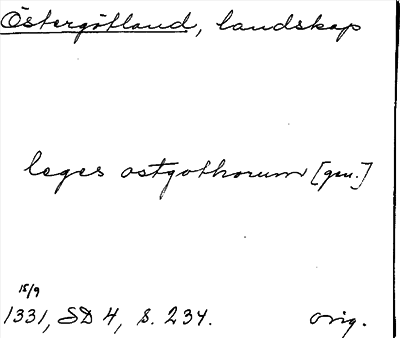 Östergötland, landskap
leges ostgothorum [gen.]
15/9
1331, SD 4, s. 234.
orig.